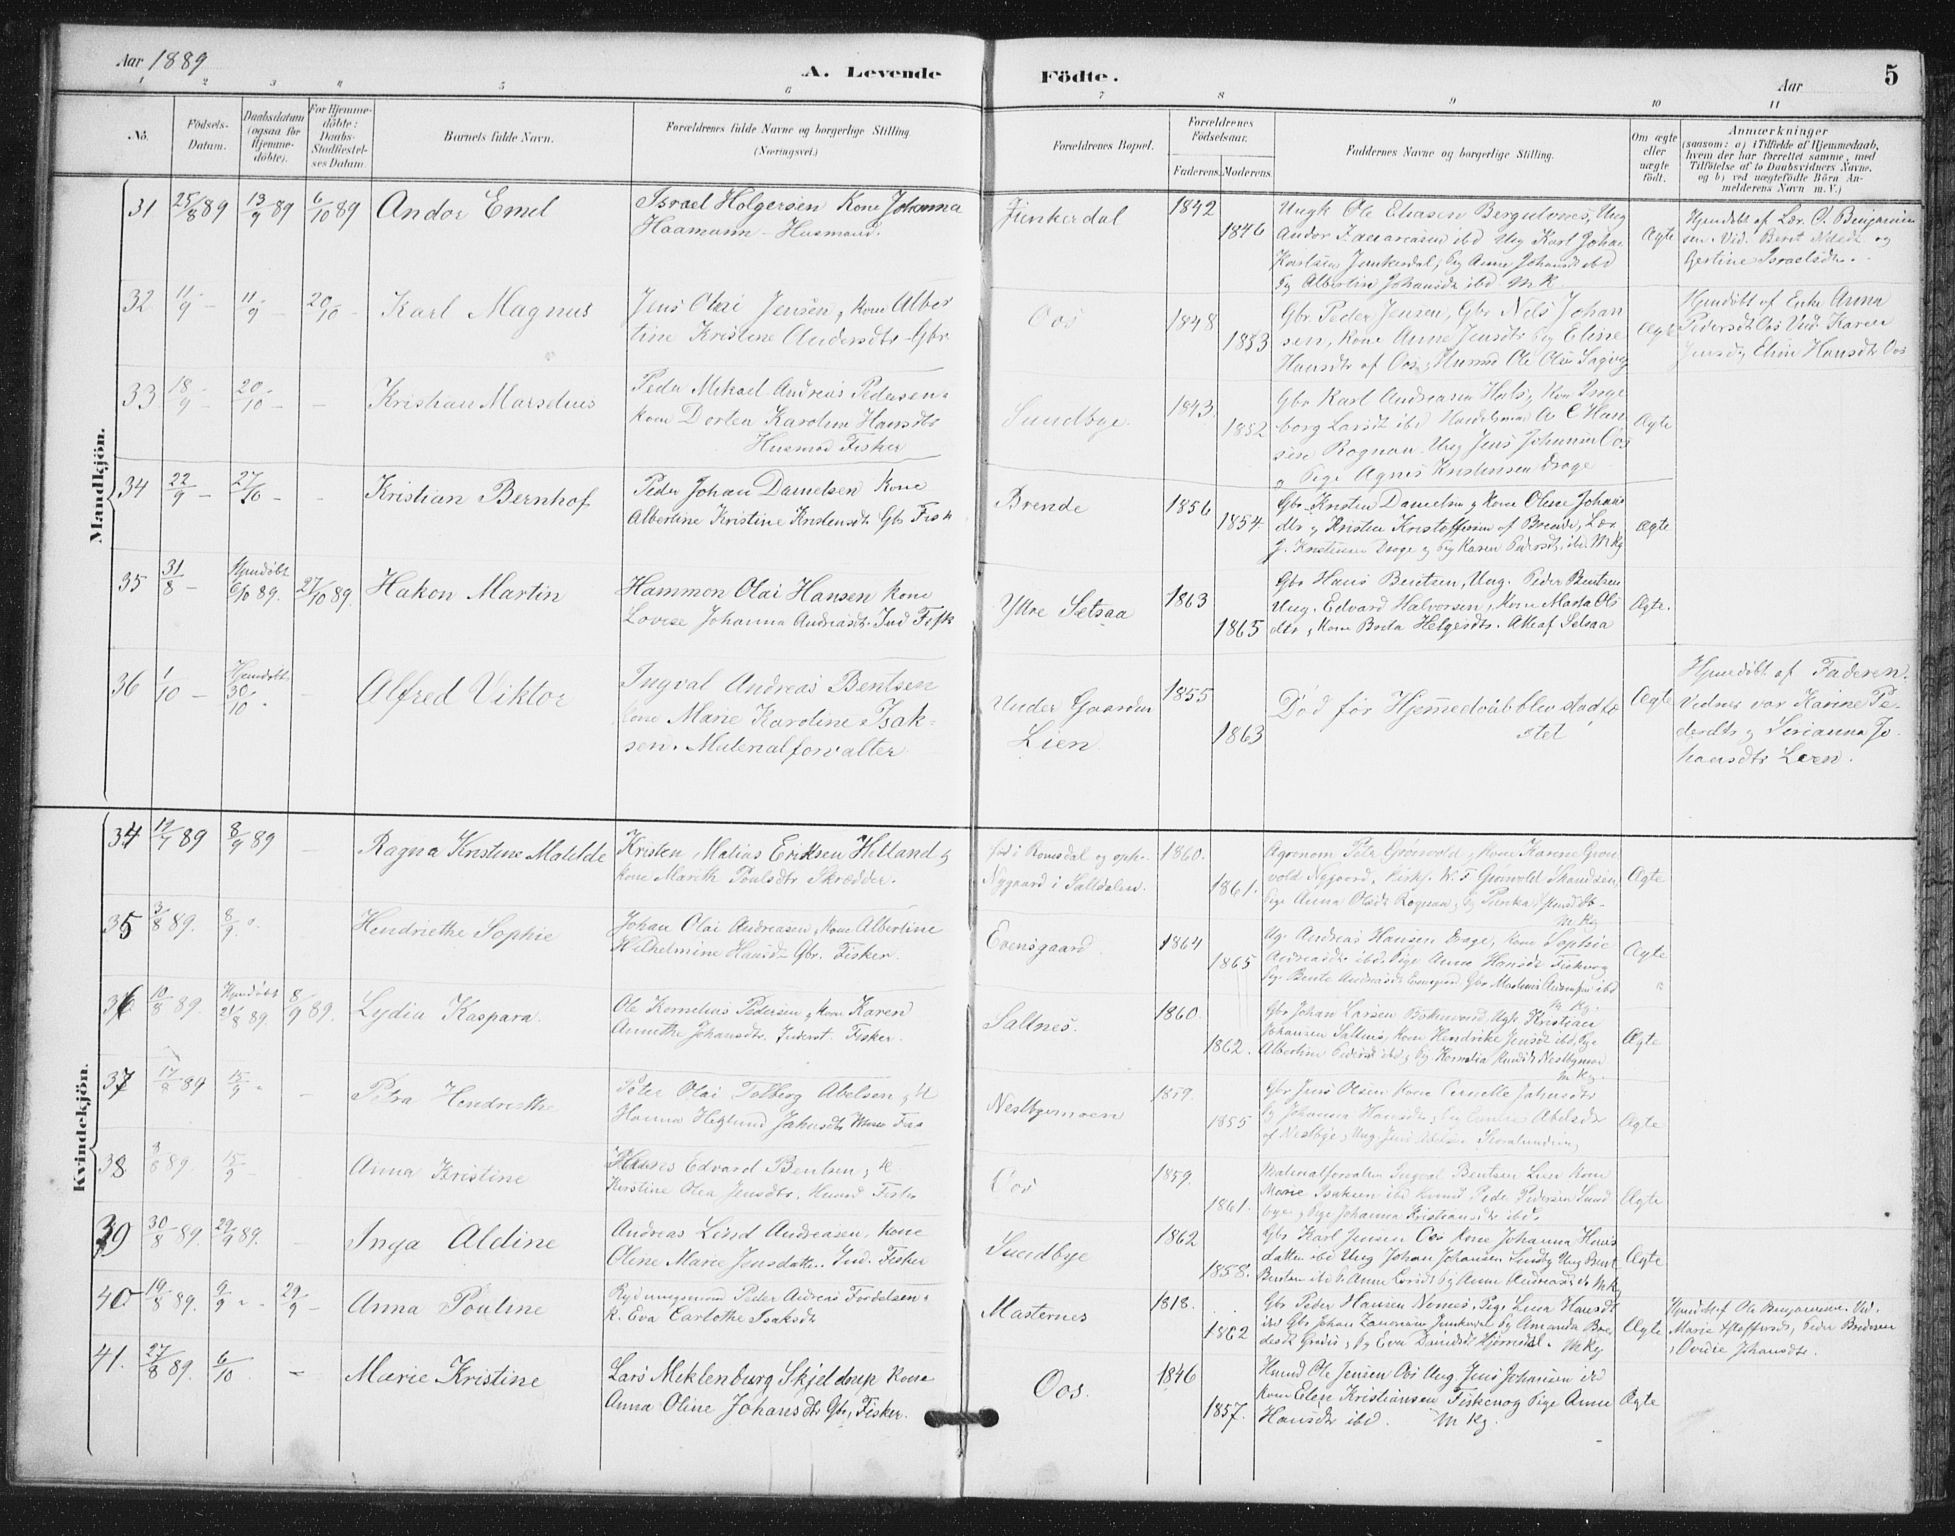 Aar 1889
A. Levende Födte.
Aar
5
1 2 3 4 5 6 7 8 9 10 11
No.
Födsels-Datum.
Daabsdatum (ogsaa for Hjemme-döbte).
For Hjemme-döbte: Daabs-Stadfæstel-ses Datum.
Barnets fulde Navn.
Forældrenes fulde Navne og borgerlige Stilling
(Næringsvei.)
Forældrenes Bopæl.
Forældrenes Födselsaar.
Faderens. Moderens.
Faddernes Navne og borgerlige Stilling.
Om ægte eller uægte födt.
Anmærkninger
(saasom: a) i Tilfælde af Hjemmedaab,
hvem der har forrettet samme, med
Tilföielse af to Daabsvidners Navne.
og b) ved uægtefödte Börn An-
melderens Navn m. V.)
Mandkjön.
31 25/8 89 13/9 89 6/10 89 Andor Emil
Israel Holgersen Kone Johanna
Haamann - Husmand.
Junkerdal 1842 1846
Ungk Ole Eliasen Bergulvnes, Ung
Andor Zacariasen ibd Ung Karl Johan
Karlsen Junkerdal, Pig Anne Johansdt ibd
Pg Albertine Johansdt ibd. MK
Ægte
Hjemdøbt af Lær. O. Benjamin
sen. Vid. Beret Nilsdt og
Gertine Israelsdtr.
32 11/9 - 11/9 - 20/10 - Karl Magnus
Jens Olai Jensen, Kone Alber
tine Kristine Andersdtr Gbr
Oos 1848 1853
Gbr. Peder Jensen, Gbr Nils Johan
sen, Kone Anne Jensdtr Pig Eline
Hansdtr af Oos, Husmd Ole Olsen
Ægte
Hjemdøbt af Enke Anna
Pedersdtr Oos Vid. Karen
Jensdt, Elen Hansdtr Oos
33 18/9 - 20/10 - - Kristian Marselius
Peder Mikael Andreas Pedersen
kone Dortea Karoline Hansdtr
Husmnd Fisker
Sundbye. 1843. 1852
Gbr Karl Andreasen Hals, Kone Inge
borg Larsdt ibd Handelsmd A. C. Han
sen Rognan. Ung Jens Johansen Oos
og Pige Agnes Kristensen Drage
Ægte
34 22/9 - 27/10 - - Kristian Bernhof
Peder Johan Danielsen Kone
Albertine Kristine Kristensdt Gbr Fisk
Brende 1856 1854
Gbr. Kristen Danielsen, kone Oline Johans
dtr, Kristen Kristoffersen af Brende, Lær
J. Kristensen Drage, Pig Karen Pedersdt ibd. M Kg
Ægte
35 31/8 - Hjemdøbt 6/10 89. 27/10 89. Hakon Martin
Hammon Olai Hansen Kone
Lovise Johanna Andreasdtr. Ind Fisk
Ytre Setsaa 1863 1865
Gbr Hans Bentsen, Ung. Peder Bentsen
Ung. Edvard Halvorsen, Kone Marta Ols
dtr, Kone Berta Helgesdtr. Alle af Setsaa
Ægte.
36 1/10 - Hjemdøbt 30/10 - Alfred Viktor
Ingval Andreas Bentsen
Kone Marie Karoline Isak-
sen. Materialforvalter
Under Gaarden
Lien. 1855 1863
Død før Hjemmedaab blev stadfæ
stet
Ægte
Hjemdøbt af Faderen.
Vidner var Karine Pe-
dersdtr, Serianna Jo-
hansdtr Leen.
Kvindekjön.
34 89 8/9 89 - Ragna Kristine Matilde
Kristen Matias Eriksen Hetland og
kone Marith Poulsdtr Skrædder.
fød i Romsdal og oph.
Nygaard i Saltdalen. 1860. 1861.
Agronom Petr Grønvold, Kone Karene Grøn
vold Nygaard, Kirks. W. F Grønvold Skandsen,
Pige Anna Olsdt Rognan, Pg
M Kg
Ægte
35 3/8 89. 8/9 Hendriethe Sophie
Johan Olai Andreasen, Kone Albertine
Wilhelmine Hansdt Gbr. Fisker.
Evensgaard. 1864 1865
Ug. Andreas Hansen Drage, Kone Sophie
Andreasdtr ibd. Pige Anne Hansdt Fiskvog
Pg. Bente Andreasdt Evensgaard Gbr Mathias Andersen ibd
Ægte
36 10/8 89. Hjemdøbt 21/8 89. 8/9 89. Lydia Kaspara.
Ole Kornelius Pedersen, Kone Karen
Annethe Johansdtr. Inderst. Fisker.
Saltnes. 1860. 1862.
M Kg.
Gbr Johan Larsen Botnvand, Ugk Kristian
Johansen Saltnes, Kone Hendrikke Jensdt ibd, Pge
Albertine Pedersdt ibd, Pg Kornelia Knudsdt Nestbymoe
M Kg.
Ægte
37 17/8 89 15/9 - Petra Hendriethe
Peter Olai Tolberg Abelsen, K
Hanna Heglund Jakobsdtr
Nestbymoen 1859. 1855
Gbr Jens Olsen Kone Pernelle Jakobsdtr
Pg Johanna Hansdtr, Pg Abelsdt
af Nestbye, Ung Jens
Ægte
38 3/8 89. 15/9 - Anna Kristine
Hans Edvard Bentsen, K.
Kirstine Olea Jensdtr, Husmd Fisker
Oos 1859. 1861.
Materialforvalter Ingval Bentsen Lien Kone
Marie Isaksen ibd Husmd Peder Pedersen Sund
bye, Pige Johanna Kristiansdt ibd.
Ægte
39 30/8 89. 29/9 89. - Inga Aldine
Andreas Lind Andreasen, Kone
Oline Marie Jensdatter. Ind. Fisker
Sundbye 1862 1858.
Gbr Karl Jensen Oos Kone Johanna Hans
datter ibd Ung Johan Johansen Sundby Ung Bent
Bentsen ibd P. Anne Larsdt Pg Anne Andreasdt ibd M Kg
Ægte
40 19/8 89. 9/9 - 29/9 - Anna Pouline
Rydningsmand Peder Andreas Fordelsen
K. Eva Carlothe Isaksdt
Masternes 1818. 1862
Gbr Peder Hansen Nemes, Pige Lina Hansdt
ibd Gbr Johan Zacariasen Junkerdal Pg Amanda Bre
desdt Gradis, Pg Eva Danielsdt Hjemdal. M Kg
Ægte
Hjemdbt af Ole Benjaminsen. Vid.
Marie Stoffersdt, Peder Bredesen
Ovidie Johansdtr.
41. 27/8 89. 6/10 - Marie Kristine
Lars Meklenburg Skjeldrup Kone
Anna Oline Johansdtr Gbr, Fisker.
Oos. 1846 1857.
Husmd Ole Jensen Oos Ung Jens Johansen ibd
Kone Elene Kristiansen Fiskevog Pige Anne
Hansdtr ibd. M Kg.
Ægte